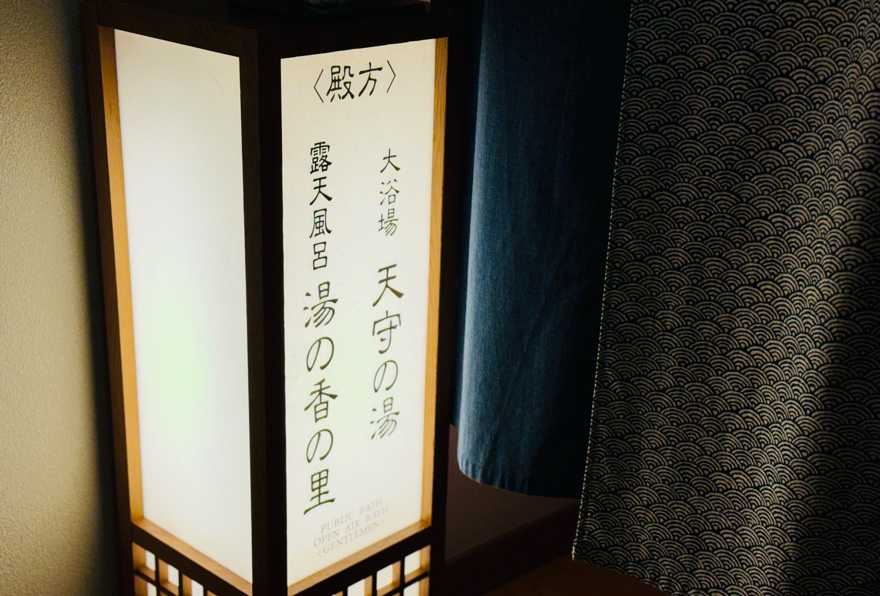 〈殿方〉
大浴場 天守の湯
露天風呂 湯の香の里
PUBLIC BATH
OPEN AIR BATH
(GENTLEMEN)